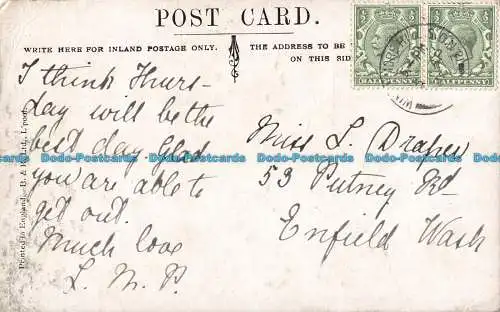 POST CARD.
WRITE HERE FOR INLAND POSTAGE ONLY.
THE ADDRESS TO BE
ON THIS SID
I think Thurs-
day will be the
best day Glad
you are able to
get out.
Much love
L. M. P.
Miss L. Draper
53 Putney Rd
Enfield Wash
Printed in England. B. & Ltd., L'pool.
HALFPENNY
HALFPENNY
Dodo-Postcards Dodo-Postcards Dodo-Postcards Dodo-Postcards Dodo-Postcards